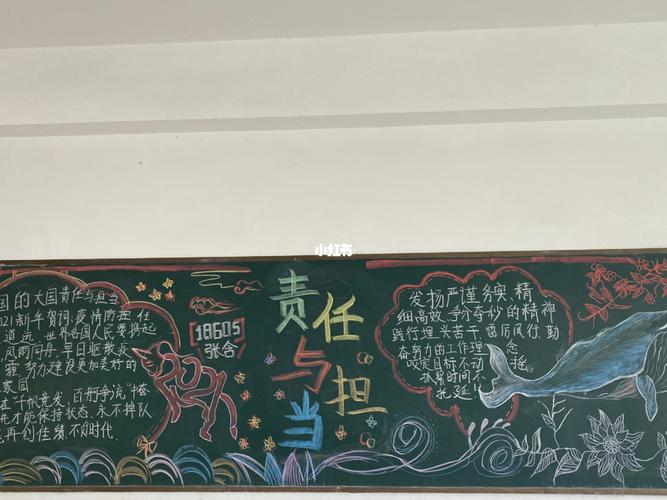 国的大国责任与担当
2021新年贺词:疫情防控任
道远,世界各国人民要携起
风雨同舟,早日驱散疫
霾,努力建设更加美好的
家园
在“千帆竞发、百舸争流”中奋
先才能保持状态,永不掉队
再创佳绩,不负时代.
18605
张含
责任
与担
当
小红书
发扬严谨务实、精
细高效、争分夺秒的精神
践行埋头苦干、雷厉风行、勤
奋努力的工作理念
咬定目标不动摇
抓紧时间不
拖延